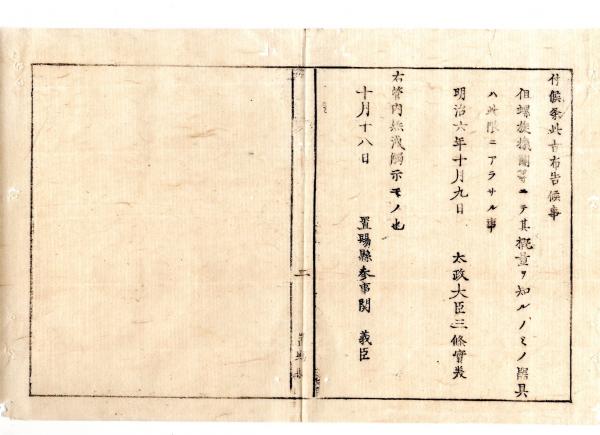 付候条此旨布告候事
但螺旋機関等ニテ其概量ヲ知ルノミノ器具
ハ此限ニアラサル事
明治六年十月九日 太政大臣三條實美
右管内無洩觸示モノ也
十月十八日 置賜縣参事関 義臣
二
置賜縣